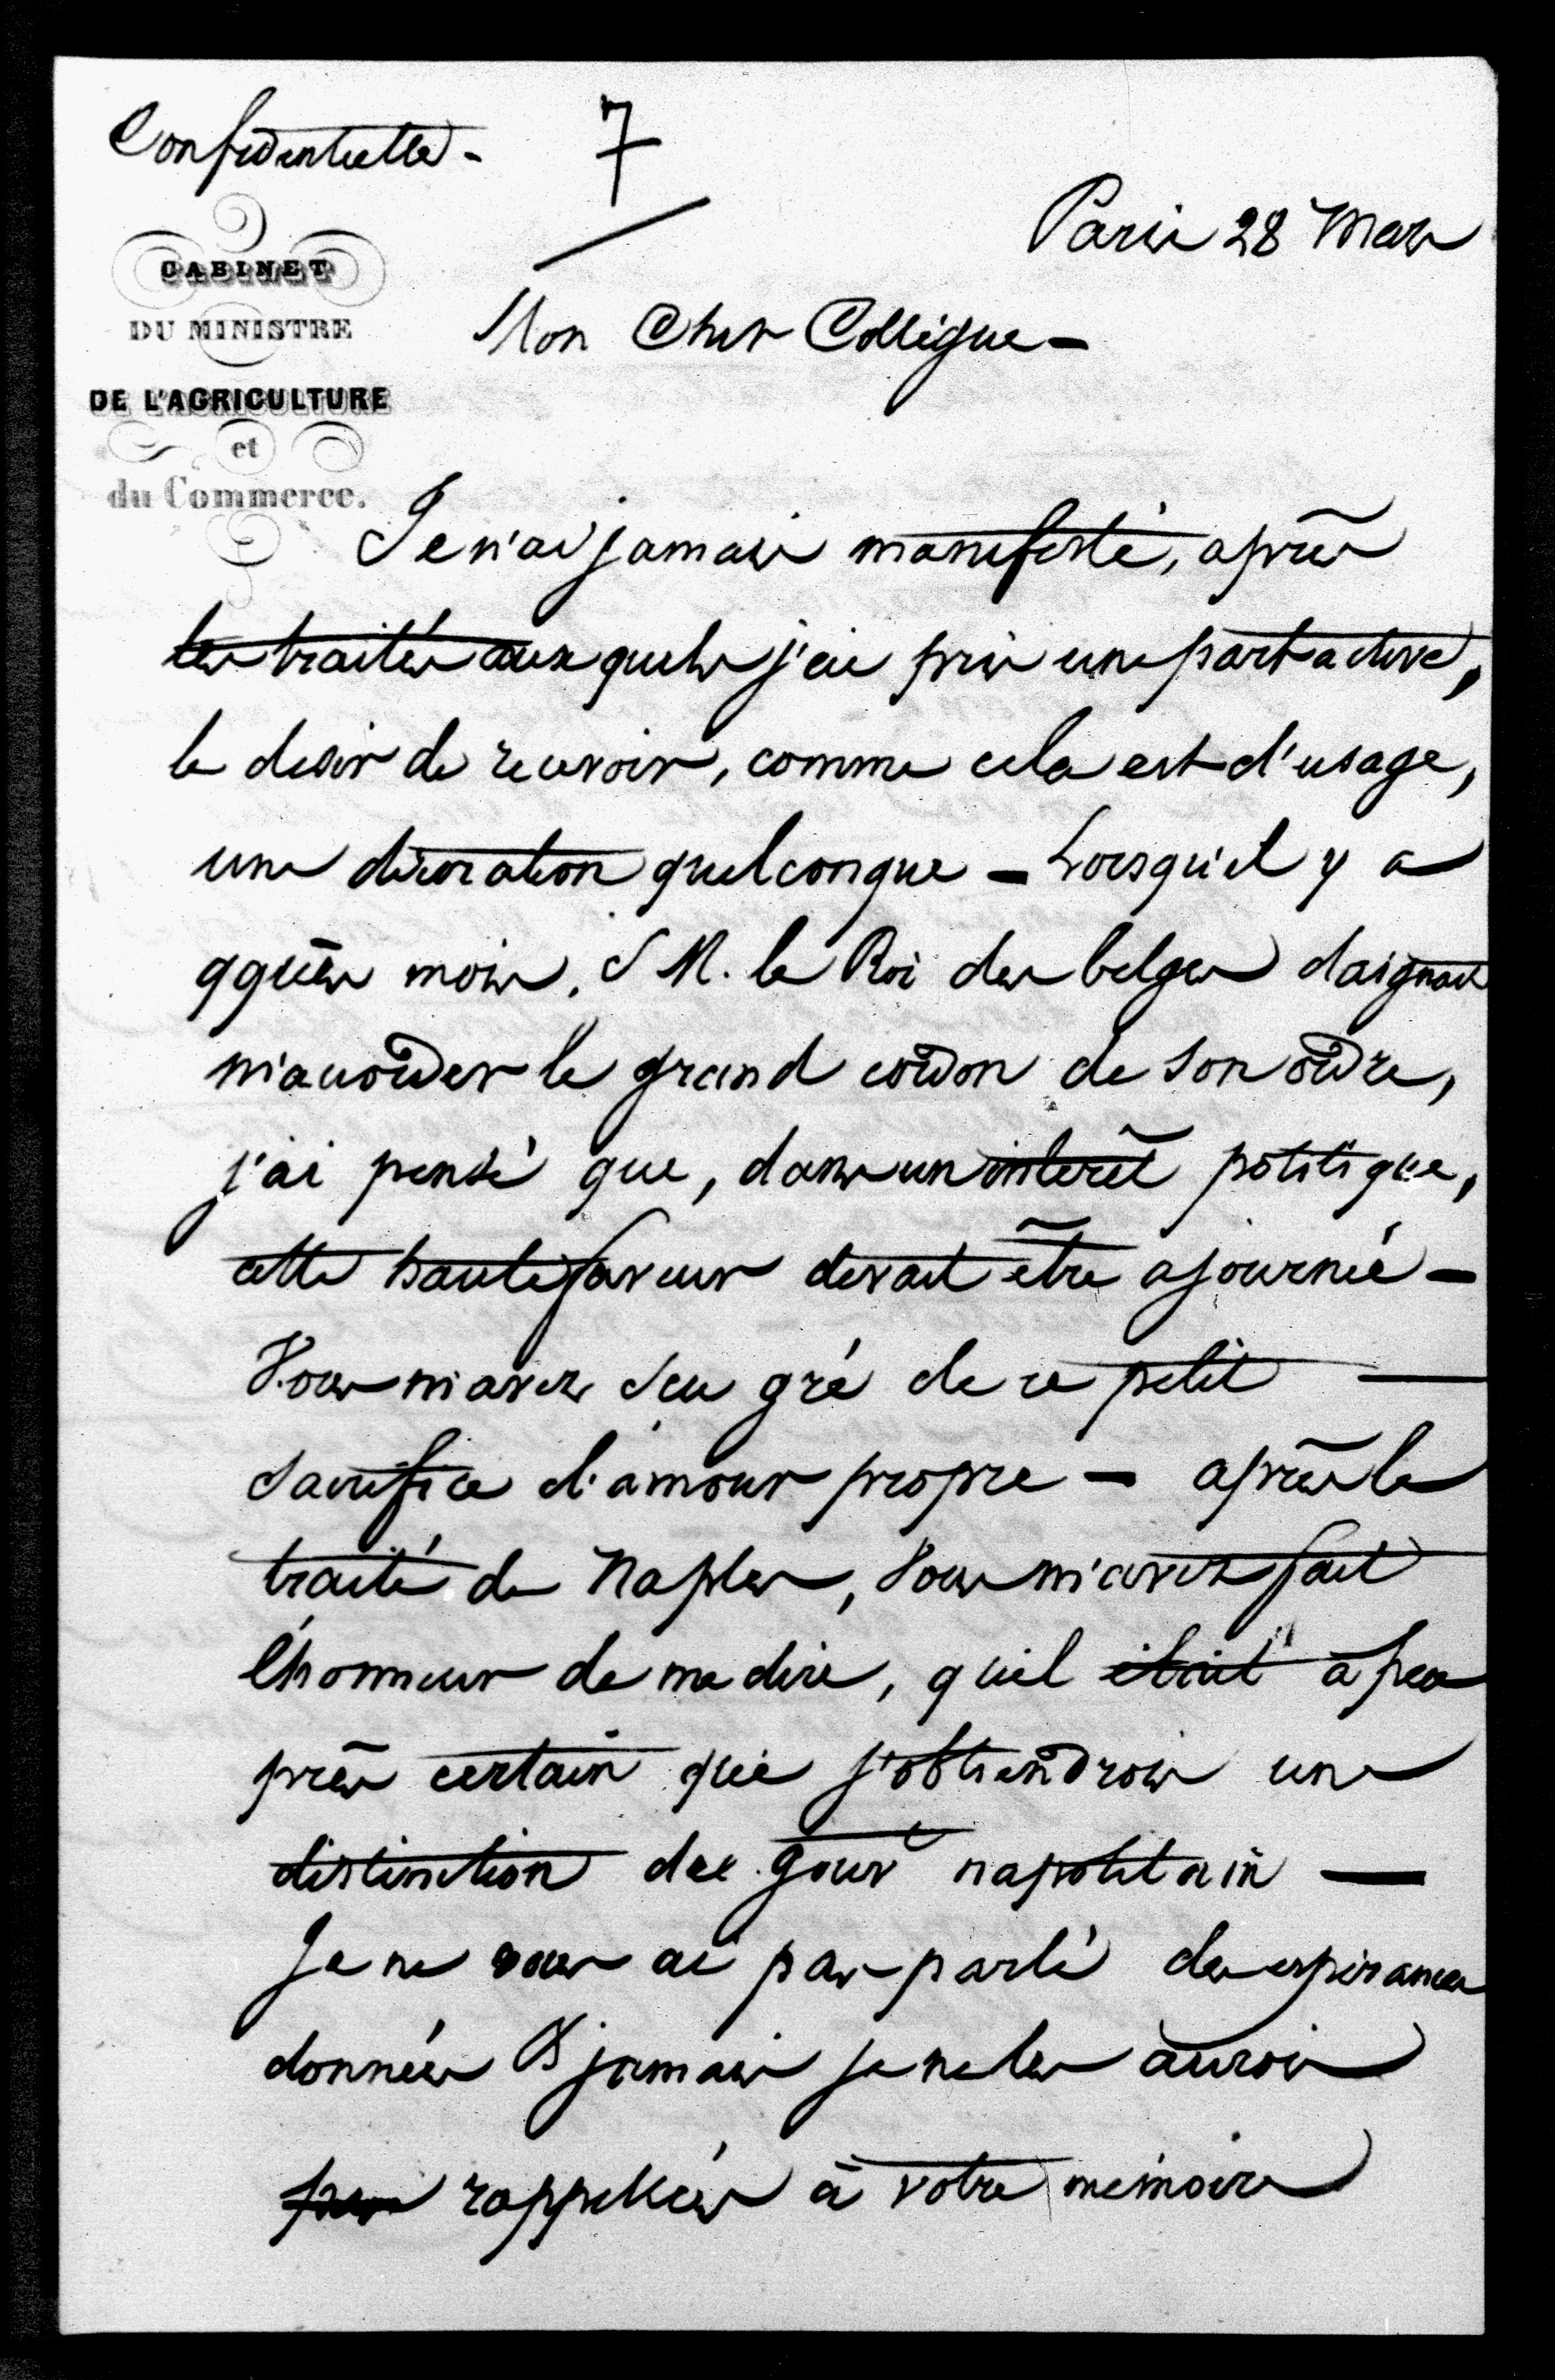 Confidentielle -
7
Paris 28 Mars
CABINET
DU MINISTRE
DE L'AGRICULTURE
et
du Commerce.
Mon Cher Collègue -
Je n'ai jamais manifesté, après
les traités auxquels j'ai pris une part active,
le desir de recevoir, comme cela est d'usage,
une décoration quelconque - Lorsqu'il y a
qques mois, S M. le Roi des belges daignait
m'accorder le grand cordon de son ordre,
j'ai pensé que, dans un interêt politique,
cette haute faveur devait être ajournée -
Vous m'avez seu gré de ce petit
sacrifice d'amour propre - après le
traité de Naples, Vous m'avez fait
l'honneur de me dire, qu'il était à peu
près certain que j'obtiendrois une
distinction du Gouvt napolitain -
Je ne vous ai pas parlé des espérances
données & jamais je ne les aurois
rappellées à votre mémoire